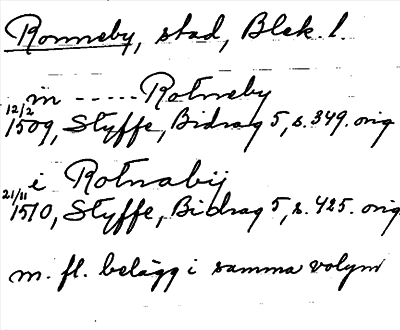 Ronneby, stad, Blek. l.
in ----- Rotneby
12/2 1509, Styffe, Bidrag 5, s. 349. orig
i Rotnabij
21/11 1510, Styffe, Bidrag 5, s. 425. orig.
m. fl. belägg i samma volym